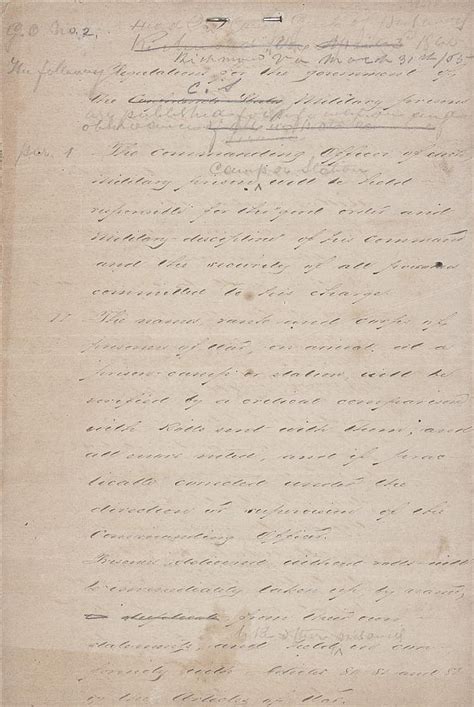 G.O No. 2. Head Qrs of
Richmond Va March 31st /65
The following Regulations for the government of
the C. S. Military prisons
are published for
observance
par. 1 The Commanding Officer of each
Camp or Station
military prison will be held
responsible for the good order and
military discipline of his command
and the security of all prisoners
committed to his charge.
II The names, rank and Corps of
prisoners of War, on arrival at a
prison camp or station, will be
verified by a critical comparison
with Rolls sent with them; and
all errors noted, and if prac
tically corrected under the
direction or supervision of the
Commanding Officer.
Prisoners delivered without rolls will
be immediately taken up by name,
from their own
statements, and rolls in con
formity with Articles 80 and 81
in the Articles of War.